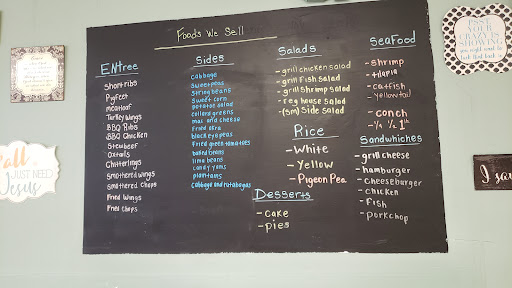 Foods We Sell
ENtree
Short ribs
Pigfeet
meatloaf
Turkey wings
BBQ Ribs
BBQ Chicken
Stewbeef
Oxtails
Chitterlings
Smothered wings
Smothered Chops
Fried Wings
Fried Chops
Sides
cabbage
Sweet peas
String beans
Sweet corn
potatoe salad
collard greens
mac and cheese
Fried okra
black eye peas
Fried green tomatoes
baked beans
lima beans
candy yams
plantains
Cabbage and rutabagas
Salads
- grill chicken salad
- grill fish salad
- grill Shrimp salad
- reg house salad
- (sm) Side salad
Rice
- White
- Yellow
- Pigeon Pea
Desserts
- cake
- pies
SeaFood
- shrimp
- tilapia
- catfish
- Yellowtail
- conch
- 1/4 1/2 1 lb
Sandwhiches
- grill cheese
- hamburger
- cheeseburger
- chicken
- Fish
- porkchop
all I
JUST NEED
Jesus